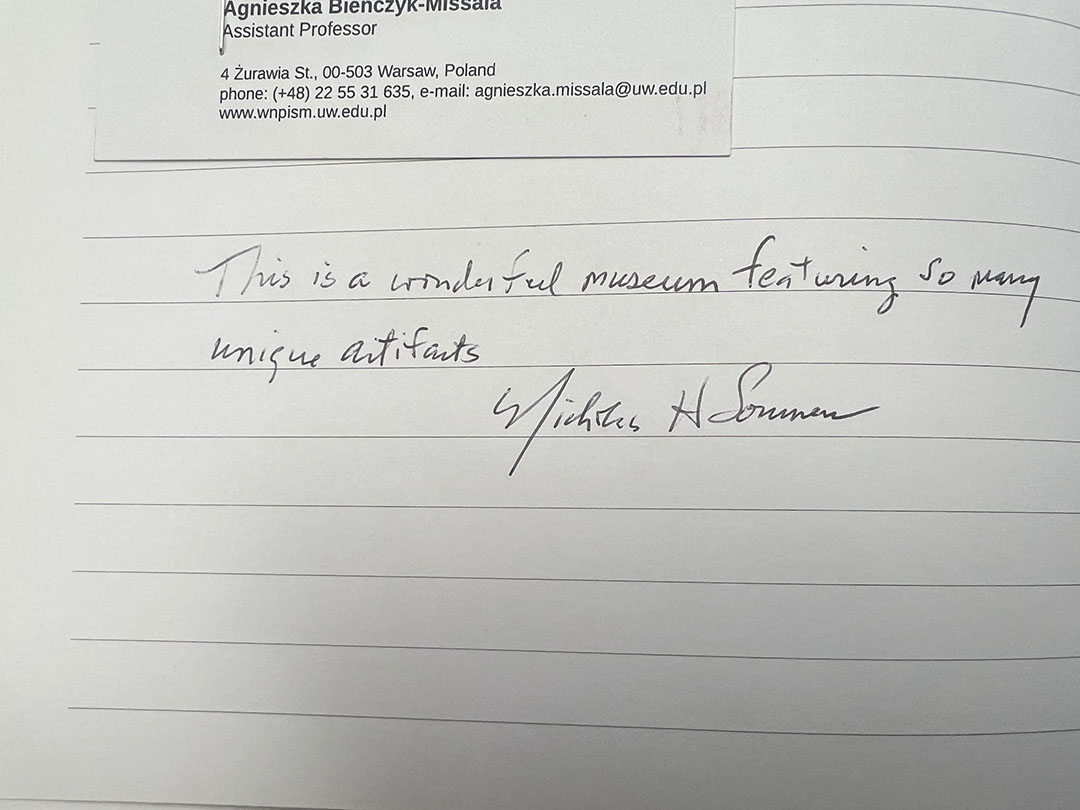 Agnieszka Bieńczyk-Missala
Assistant Professor
4 Żurawia St., 00-503 Warsaw, Poland
phone: (+48) 22 55 31 635, e-mail: agnieszka.missala@uw.edu.pl
www.wnpism.uw.edu.pl
This is a wonderful museum featuring so many
unique artifacts
H